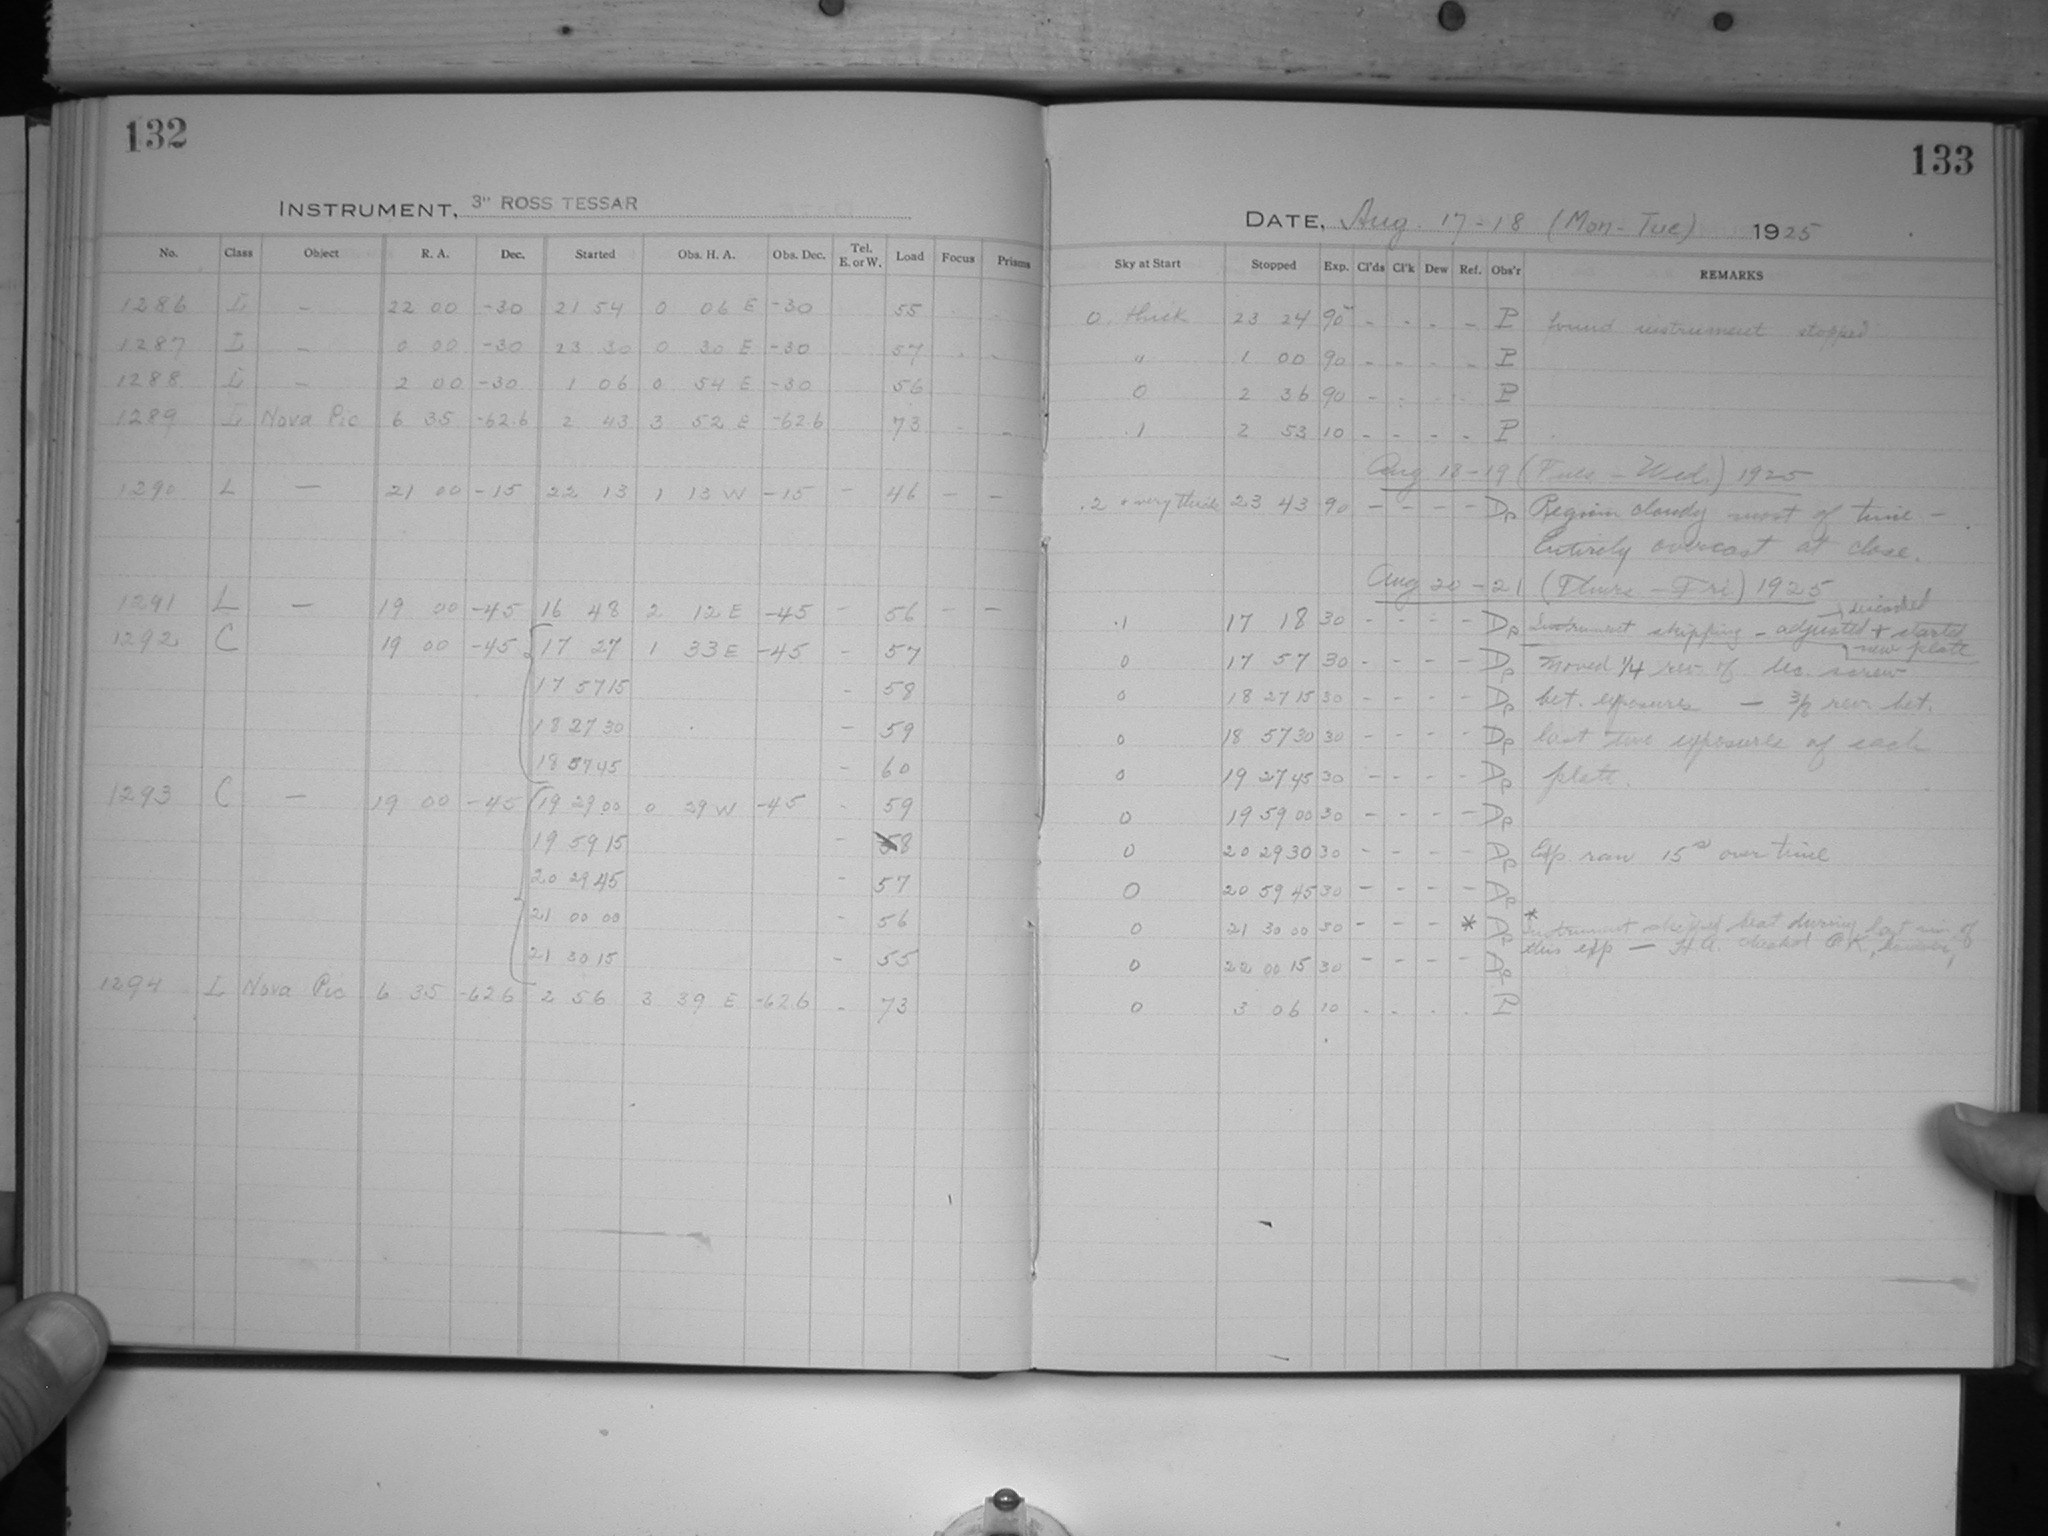 132
INSTRUMENT, 3" ROSS TESSAR
No. Class Object R. A. Dec. Started Obs. H. A. Obs. Dec. Tel. E. or W. Load Focus Prisms
1286 L — 22 00 -30 21 54 0 06 E -30 55
1287 L — 0 00 -30 23 30 0 30 E -30 57
1288 L — 2 00 -30 1 06 0 54 E -30 56
1289 L Nova Pic 6 35 -62.6 2 43 3 52 E -62.6 73 - -
1290 L — 21 00 -15 22 13 1 13 W -15 - 46 - -
1291 L — 19 00 -45 16 48 2 12 E -45 - 56 - -
1292 C 19 00 -45 17 27 1 33 E -45 - 57
17 57 15 - 58
18 27 30 - 59
18 57 45 - 60
1293 C — 19 00 -45 19 29 00 0 29 W -45 - 59
19 59 15 - 58
20 29 45 - 57
21 00 00 - 56
21 30 15 - 55
1294 L Nova Pic 6 35 -62.6 2 56 3 39 E -62.6 - 73
133
DATE, Aug. 17-18 (Mon-Tue) 1925
Sky at Start Stopped Exp. Cl'ds Cl'k Dew Ref. Obs'r REMARKS
0, thick 23 24 90m - - - - P found instrument stopped
" 1 00 90 - - - - P
0 2 36 90 - - - - P
.1 2 53 10 - - - - P
Aug 18-19 (Tues-Wed.) 1925
.2 + very thick 23 43 90 - - - - Dp Region cloudy most of time -
Entirely overcast at close.
Aug 20-21 (Thurs-Fri) 1925
discarded
.1 17 18 30 - - - - Dp Instrument skipping - adjusted + started
new plate
0 17 57 30 - - - - Dp Moved 1/4 rev. of dec. screw
0 18 27 15 30 - - - - Ap bet. exposures — 3/8 rev. bet.
0 18 57 30 30 - - - - Dp last two exposures of each
0 19 27 45 30 - - - - Ap plate.
0 19 59 00 30 - - - - Ap
0 20 29 30 30 - - - - Ap Exp ran 15s over time
0 20 59 45 30 - - - - Ap
0 21 30 00 30 - - - * Ap * Instrument skipped beat during last min of
this exp — H.A. checked OK, however,
0 22 00 15 30 - - - - Ap
0 3 06 10 - - - - P